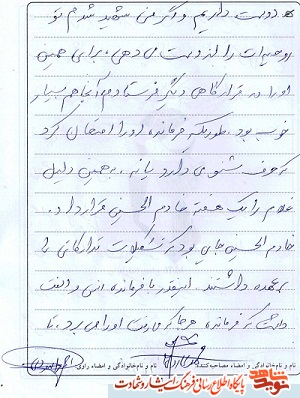 دوست داریم و اگر من شهید شدم تو
روحیه‌ات را از دست می‌دهی، برای همین
او را در قرارگاهی دیگر فرستادم آنجا هم بسیار
خوب بود. طوریکه فرمانده، او را امتحان کرد
که حرف شنوی دارد یا نه، به همین دلیل
غلام را یک هفته خادم الحسین قرار داد.
خادم الحسین جایی بود که تشکیلات تدارکاتی را
به عهده داشتند. اینقدر با فرمانده انس و الفت
داشت که فرمانده هر جا که می‌رفت او را می‌برد تا
نام و نام خانوادگی و امضاء مصاحبه کننده
نام و نام خانوادگی و امضاء راوی
نوید شاهد
پایگاه اطلاع رسانی فرهنگ ایثار و شهادت